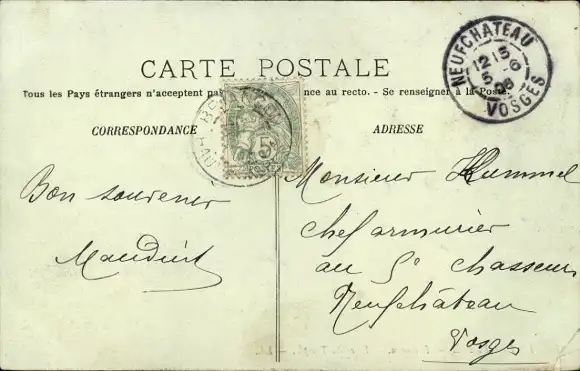 NEUFCHATEAU
12 15
5 6
08
VOSGES
CARTE POSTALE
Tous les Pays étrangers n'acceptent pas ance au recto. - Se renseigner à la Poste.
CORRESPONDANCE
ADRESSE
5
POSTES
Bon souvenir
Mauduit
Monsieur Hummel
chef armurier
au 5e chasseurs
Neufchâteau
Vosges